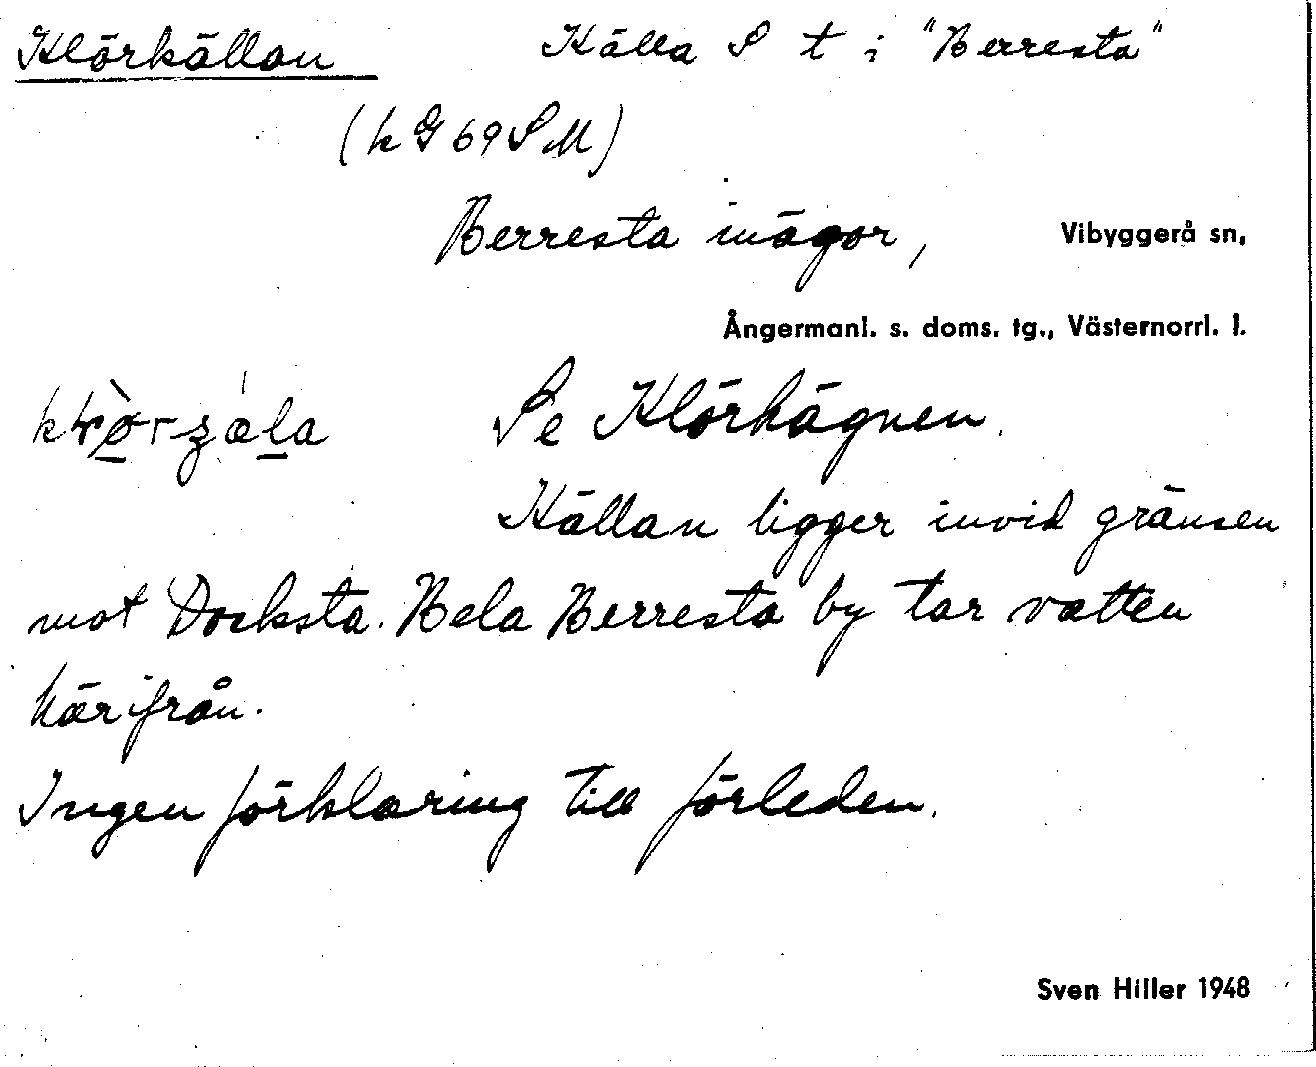 Klörkällan Källa S t i "Berresta"
(k G 69 S M)
Berresta inägor, Vibyggerå sn,
Ångermanl. s. doms. tg., Västernorrl. l.
Se Klörhägnen.
Källan ligger invid gränsen
mot Docksta. Hela Berresta by tar vatten
härifrån.
Ingen förklaring till förleden.
Sven Hiller 1948